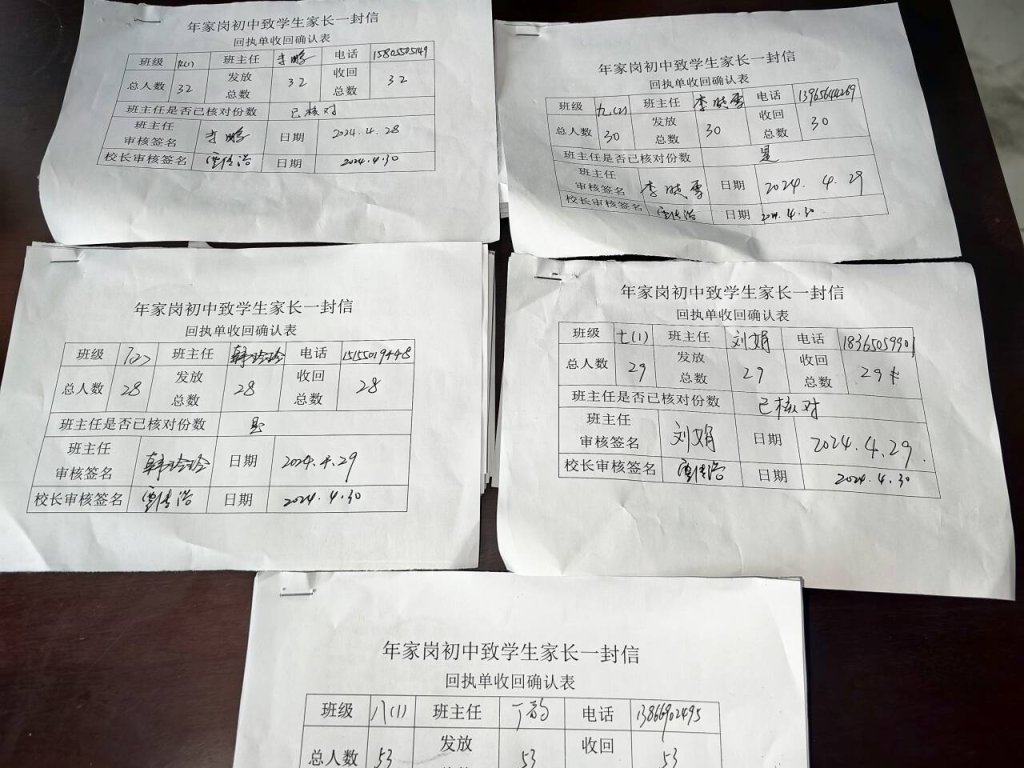 年家岗初中致学生家长一封信
回执单收回确认表
班级 班主任 李鹏 电话
总人数 32 发放总数 32 收回总数 32
班主任是否已核对份数 已核对
班主任审核签名 李鹏 日期 2024.4.28
校长审核签名 日期 2024.4.30
年家岗初中致学生家长一封信
回执单收回确认表
班级 九(2) 班主任 李晓雪 电话
总人数 30 发放总数 30 收回总数 30
班主任是否已核对份数 是
班主任审核签名 李晓雪 日期 2024.4.29
校长审核签名 日期 2024.4.30
年家岗初中致学生家长一封信
回执单收回确认表
班级 班主任 韩玲玲 电话
总人数 28 发放总数 28 收回总数 28
班主任是否已核对份数 是
班主任审核签名 韩玲玲 日期 2024.4.29
校长审核签名 日期 2024.4.30
年家岗初中致学生家长一封信
回执单收回确认表
班级 七(1) 班主任 刘娟 电话 18365059901
总人数 29 发放总数 29 收回总数 29
班主任是否已核对份数 已核对
班主任审核签名 刘娟 日期 2024.4.29.
校长审核签名 日期 2024.4.30
年家岗初中致学生家长一封信
回执单收回确认表
班级 八(1) 班主任 丁韵 电话 13866902495
总人数 53 发放 53 收回 53